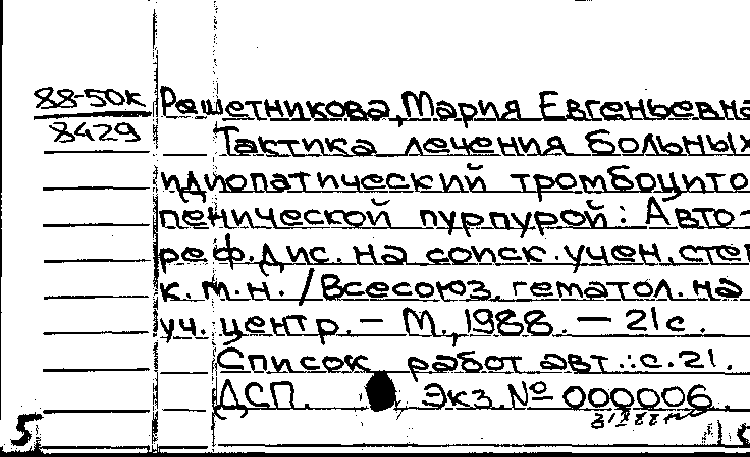 88-50к
8429
Решетникова, Мария Евгеньевна
Тактика лечения больных
идиопатический тромбоцито
пенической пурпурой: Авто-
реф. дис. на соиск. учен. степ
к.м.н. / Всесоюз. гематол. на
уч. центр. – М., 1988. – 21 с.
Список работ авт.: с. 21.
ДСП. Экз. № 000006.
5